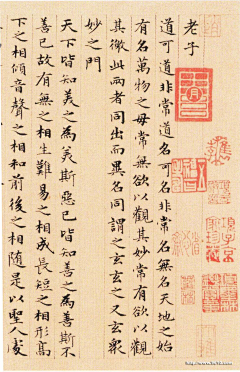 老子
道可道非常道名可名非常名無名天地之始
有名萬物之母常無欲以觀其妙常有欲以觀
其徼此兩者同出而異名同謂之玄玄之又玄眾
妙之門
天下皆知美之為美斯惡已皆知善之為善斯不
善已故有無之相生難易之相成長短之相形高
下之相傾音聲之相和前後之相隨是以聖人處